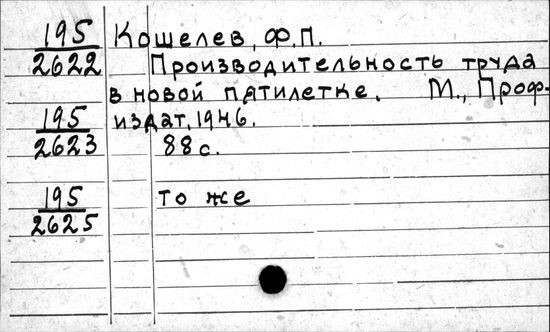 195 Кошелев, Ф.П.
2622 Производительность труда
в новой пятилетке. М., Проф-
195 издат, 1946.
2623 88 с.
195 то же
2625